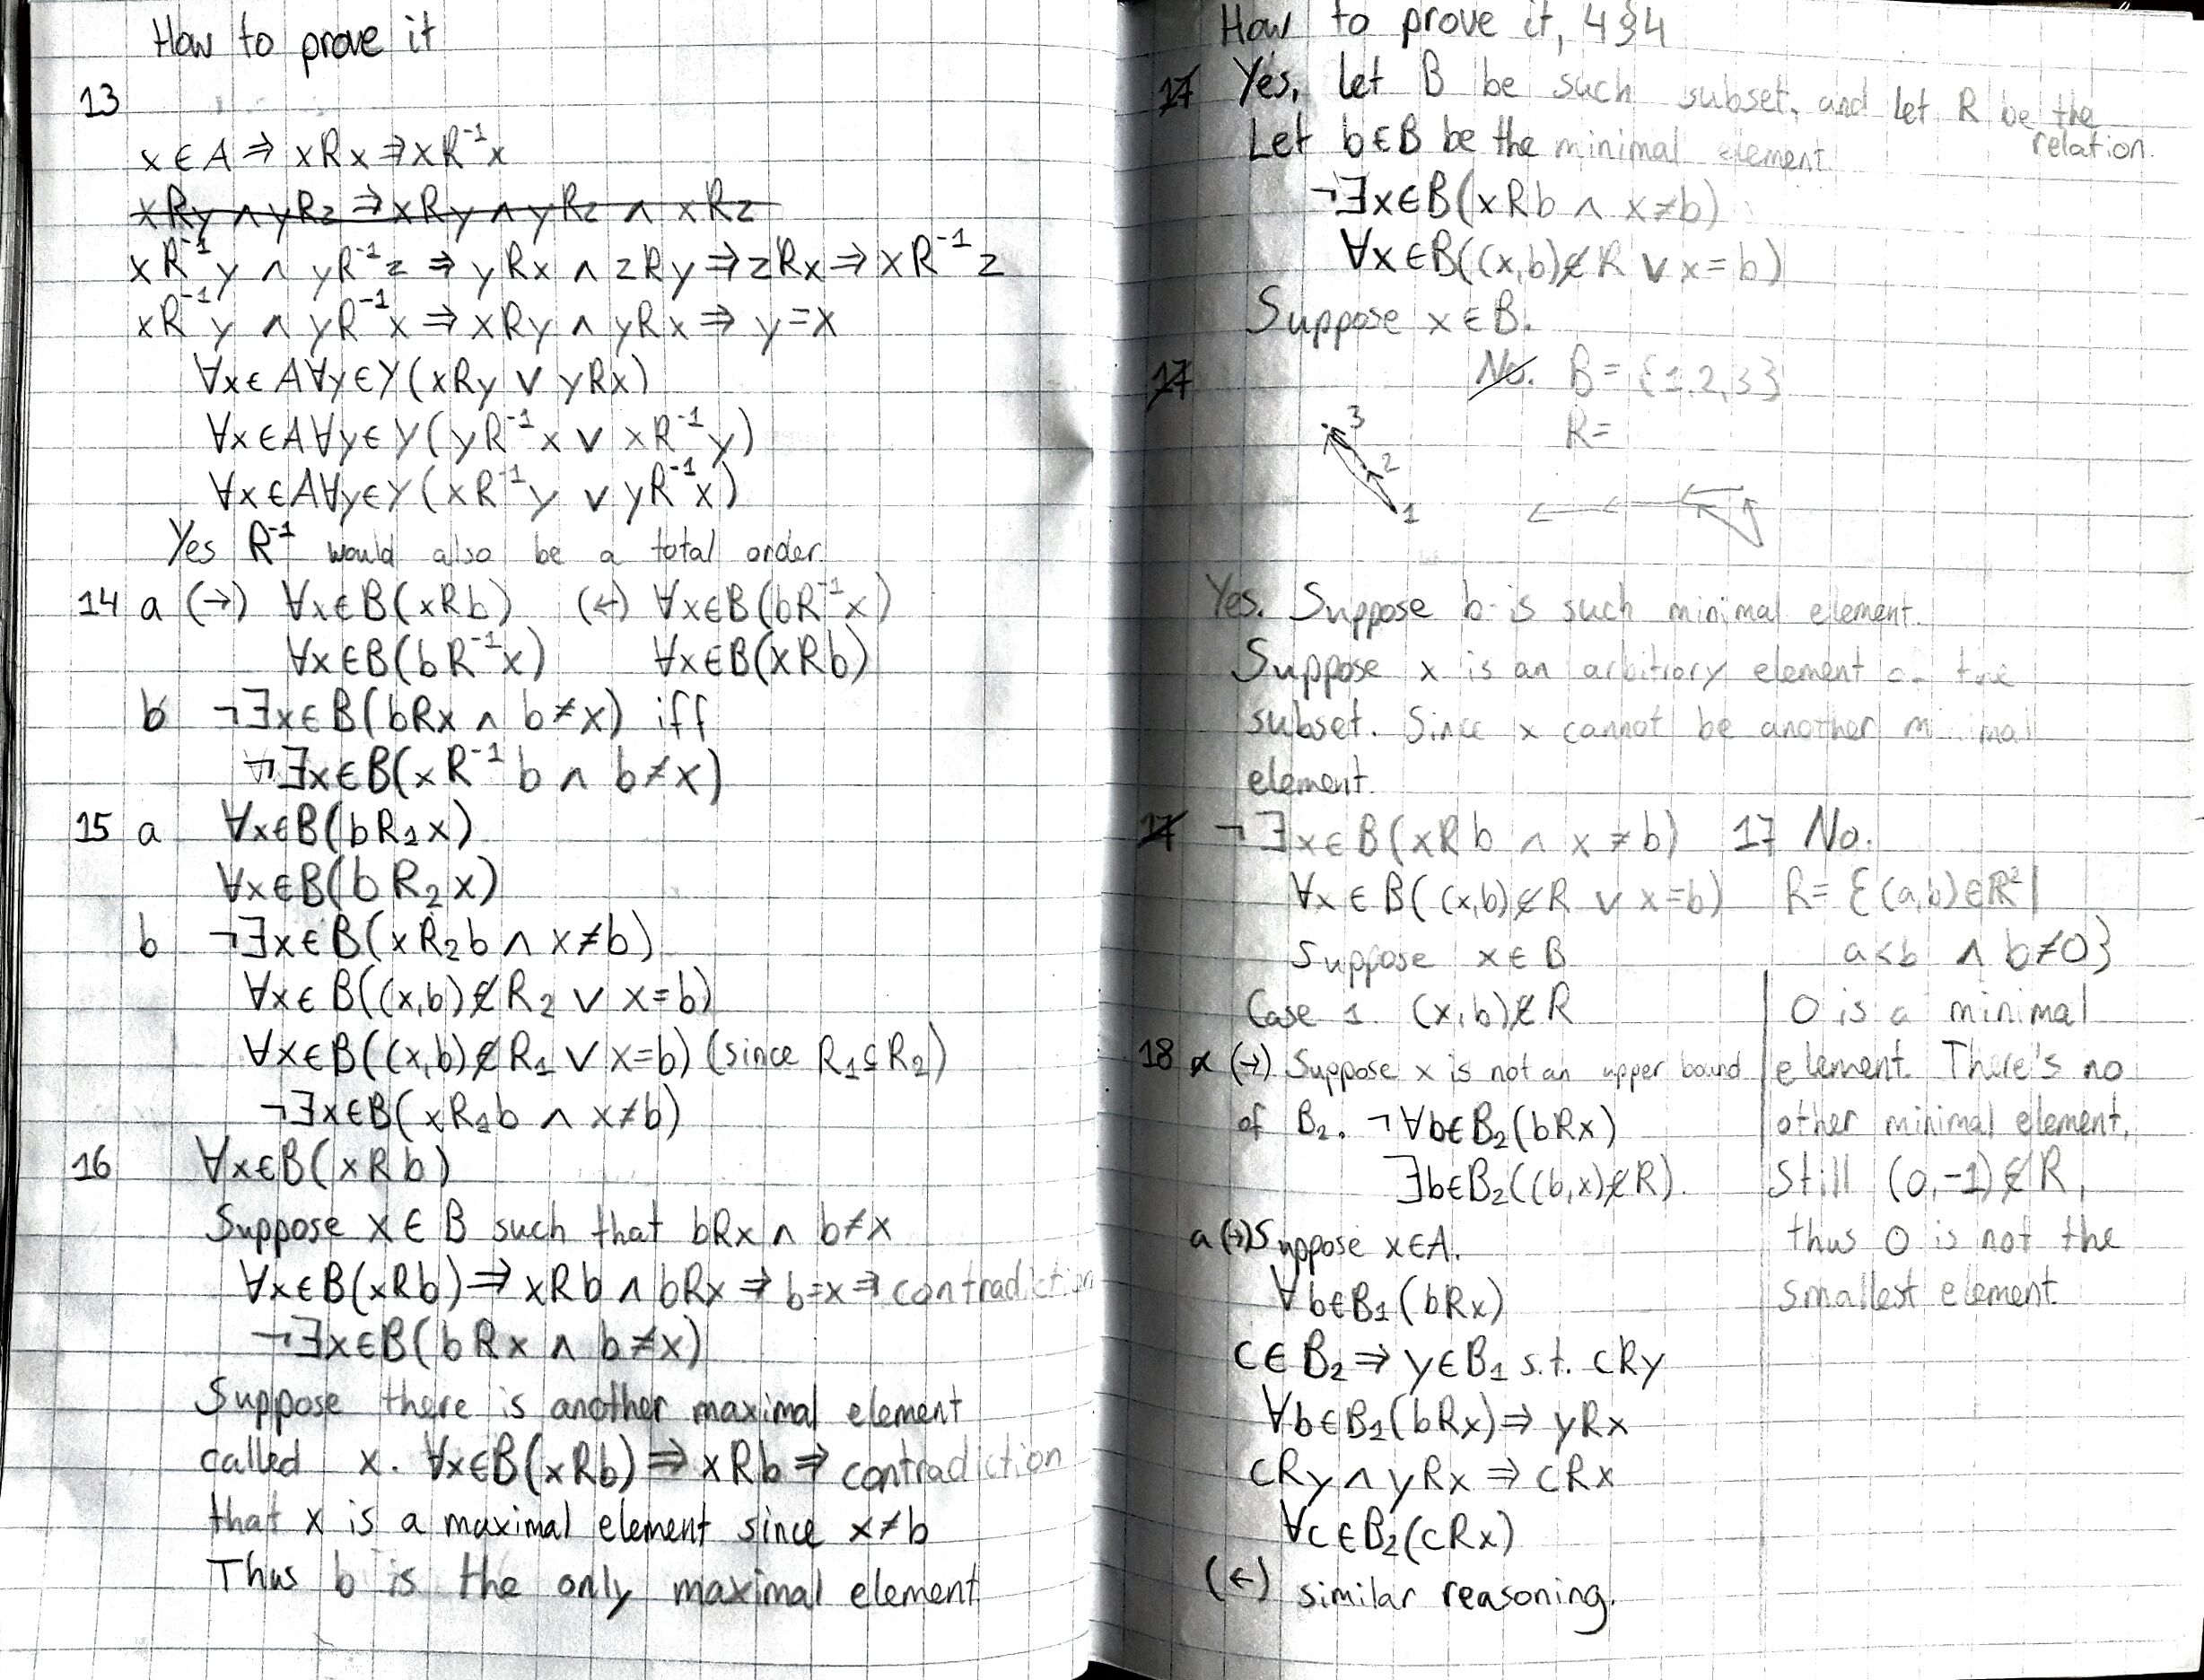 How to prove it
13
x∈A⇒xRx⇒xR⁻¹x
xRy∧yRz⇒xRy∧yRz∧xRz
xR⁻¹y ∧ yR⁻¹z ⇒ yRx ∧ zRy⇒zRx⇒xR⁻¹z
xR⁻¹y ∧ yR⁻¹x⇒xRy∧yRx⇒y=x
∀x∈A∀y∈Y(xRy ∨ yRx)
∀x∈A∀y∈Y(yR⁻¹x ∨ xR⁻¹y)
∀x∈A∀y∈Y(xR⁻¹y ∨ yR⁻¹x)
Yes R⁻¹ would also be a total order.
14 a (→) ∀x∈B(xRb) (←) ∀x∈B(bR⁻¹x)
∀x∈B(bR⁻¹x) ∀x∈B(xRb)
b ¬∃x∈B(bRx ∧ b≠x) iff
¬∃x∈B(xR⁻¹b ∧ b≠x)
15 a ∀x∈B(bR₁x)
∀x∈B(bR₂x)
b ¬∃x∈B(xR₂b∧x≠b)
∀x∈B((x,b)∉R₂ ∨ x=b)
∀x∈B((x,b)∉R₁∨x=b) (since R₁⊆R₂)
¬∃x∈B(xR₁b ∧ x≠b)
16 ∀x∈B(xRb)
Suppose x∈B such that bRx∧ b≠x
∀x∈B(xRb)⇒xRb∧bRx⇒b=x⇒contradiction
¬∃x∈B(bRx ∧ b≠x)
Suppose there is another maximal element
called x. ∀x∈B(xRb)⇒xRb⇒contradiction
that x is a maximal element since x≠b
Thus b is the only maximal element
How to prove it, 4§4
17 Yes, let B be such subset, and let R be the
relation.
Let b∈B be the minimal element.
¬∃x∈B(xRb ∧ x≠b)
∀x∈B((x,b)∉R ∨ x=b)
Suppose x∈B.
17 No. B={1,2,3}
R=
3
2
1
Yes. Suppose b is such minimal element.
Suppose x is an arbitrory element
subset. Since x cannot be another
element.
17 ¬∃x∈B(xRb ∧ x≠b)
∀x∈B((x,b)∉R ∨ x=b)
Suppose x∈B
Case 1. (x,b)∉R
17 No.
R={(a,b)∈ℝ²|
a<b ∧ b≠0}
0 is a minimal
element. There's no
other minimal element.
Still (0,-1)∉R,
thus 0 is not the
smallest element
18 a (→) Suppose x is not an upper bound
of B₂. ¬∀b∈B₂(bRx)
∃b∈B₂((b,x)∉R).
a (→) Suppose x∈A.
∀b∈B₁(bRx)
c∈B₂⇒y∈B₁ s.t. cRy
∀b∈B₁(bRx)⇒yRx
cRy∧yRx⇒cRx
∀c∈B₂(cRx)
(←) similar reasoning.